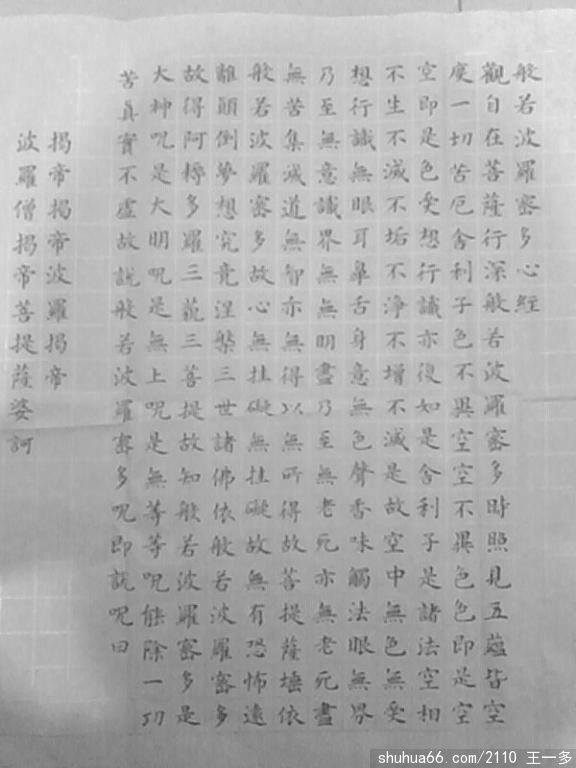 般若波羅密多心經
觀自在菩薩行深般若波羅密多時照見五蘊皆空
度一切苦厄舍利子色不異空空不異色色即是空
空即是色受想行識亦復如是舍利子是諸法空相
不生不滅不垢不淨不增不減是故空中無色無受
想行識無眼耳鼻舌身意無色聲香味觸法眼無界
乃至無意識界無無明盡乃至無老死亦無老死盡
無苦集滅道無智亦無得以無所得故菩提薩埵依
般若波羅密多故心無挂礙無挂礙故無有恐怖遠
離顛倒夢想究竟涅槃三世諸佛依般若波羅密多
故得阿耨多羅三藐三菩提故知般若波羅密多是
大神呪是大明呪是無上呪是無等等呪能除一切
苦真實不虛故說般若波羅密多呪即說呪曰
揭帝揭帝波羅揭帝
波羅僧揭帝菩提薩婆訶
shuhua66.com/2110 王一多